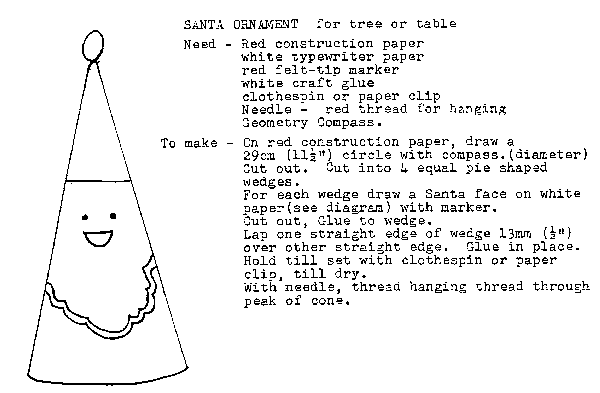 SANTA ORNAMENT for tree or table
Need - Red construction paper
white typewriter paper
red felt-tip marker
white craft glue
clothespin or paper clip
Needle - red thread for hanging
Geometry Compass.
To make - On red construction paper, draw a
29cm (11½") circle with compass.(diameter)
Cut out. Cut into 4 equal pie shaped
wedges.
For each wedge draw a Santa face on white
paper(see diagram) with marker.
Cut out, Glue to wedge.
Lap one straight edge of wedge 13mm (½")
over other straight edge. Glue in place.
Hold till set with clothespin or paper
clip, till dry.
With needle, thread hanging thread through
peak of cone.